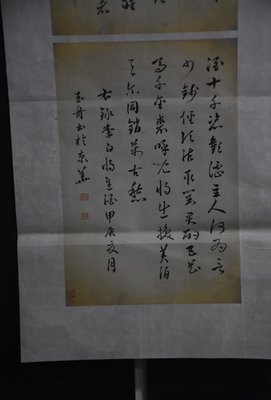 酒十千恣歡謔主人何為言
少錢徑須沽取對君酌五花
馬千金裘呼兒將出換美酒
与尔同銷萬古愁
右錄李白將進酒甲辰夏月
玉舟书於京華